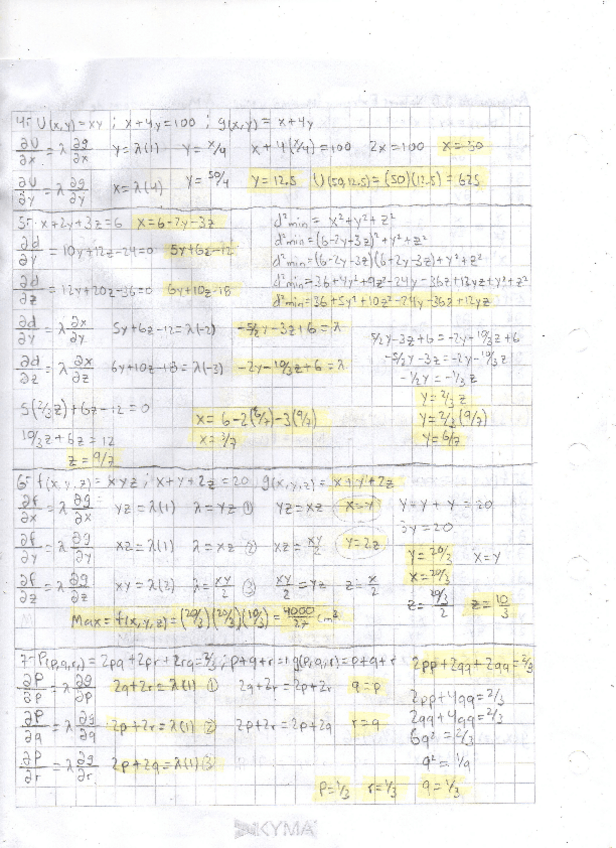 4= U(x,y)=xy ; x+4y=100 ; g(x,y)= x+4y
∂U/∂x = λ ∂g/∂x   y=λ(1)   y=x/4   x+4(x/4)=100   2x=100   x=50
∂U/∂y = λ ∂g/∂y   x=λ(4)   y=50/4   y=12,5   U(50,12,5)=(50)(12,5)=625
5= x+2y+3z=6   x=6-2y-3z   d²min= x²+y²+z²
d²min=(6-2y-3z)²+y²+z²
∂d/∂y = 10y+12z-24=0   5y+6z-12
d²min=(6-2y-3z)(6-2y-3z)+y²+z²
∂d/∂z = 12y+20z-36=0   6y+10z-18
d²min=36+4y²+9z²-24y-36z+12yz+y²+z²
d²min=36+5y²+10z²-24y-36z+12yz
∂d/∂y = λ ∂x/∂y   5y+6z-12=λ(-2)   -5/2y-3z+6=λ
5/2y-3z+6=-2y-10/3z+6
∂d/∂z = λ ∂x/∂z   6y+10z-18=λ(-3)   -2y-10/3z+6=λ
-5/2y-3z=-2y-10/3z
-1/2y=-1/3z
5(2/3z)+6z-12=0   x=6-2(6/7)-3(9/7)   y=2/3z
10/3z+6z=12   x=3/7   y=2/3(9/7)
z=9/7   y=6/7
6= f(x,y,z)=xyz ; x+y+2z=20   g(x,y,z)=x+y+2z
∂f/∂x = λ ∂g/∂x   yz=λ(1)   λ=yz ①   yz=xz   x=y   y+y+y=20
3y=20
∂f/∂y = λ ∂g/∂y   xz=λ(1)   λ=xz ②   xz=xy/2   y=2z   y=20/3   x=y
x=20/3
∂f/∂z = λ ∂g/∂z   xy=λ(2)   λ=xy/2 ③   xy/2=yz   z=x/2   z=20/3/2   z=10/3
Max=f(x,y,z)=(20/3)(20/3)(10/3)=4000/27 cm³
7- P(p,q,r)=2pq+2pr+2rq=2/3 ; p+q+r=1   g(p,q,r)=p+q+r   2pp+2qq+2qq=2/3
∂P/∂p = λ ∂g/∂p   2q+2r=λ(1) ①   2q+2r=2p+2r   q=p   2pp+4qq=2/3
∂P/∂q = λ ∂g/∂q   2p+2r=λ(1) ②   2p+2r=2p+2q   r=q   2qq+4qq=2/3
6q²=2/3
∂P/∂r = λ ∂g/∂r   2p+2q=λ(1) ③   q²=1/9
p=1/3   r=1/3   q=1/3
KYMA